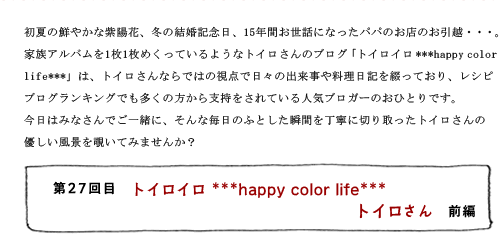 初夏の鮮やかな紫陽花、冬の結婚記念日、15年間お世話になったパパのお店のお引越・・・。
家族アルバムを1枚1枚めくっているようなトイロさんのブログ「トイロイロ***happy color
life***」は、トイロさんならではの視点で日々の出来事や料理日記を綴っており、レシピ
ブログランキングでも多くの方から支持をされている人気ブロガーのおひとりです。
今日はみなさんでご一緒に、そんな毎日のふとした瞬間を丁寧に切り取ったトイロさんの
優しい風景を覗いてみませんか？
第27回目 トイロイロ ***happy color life***
トイロさん 前編